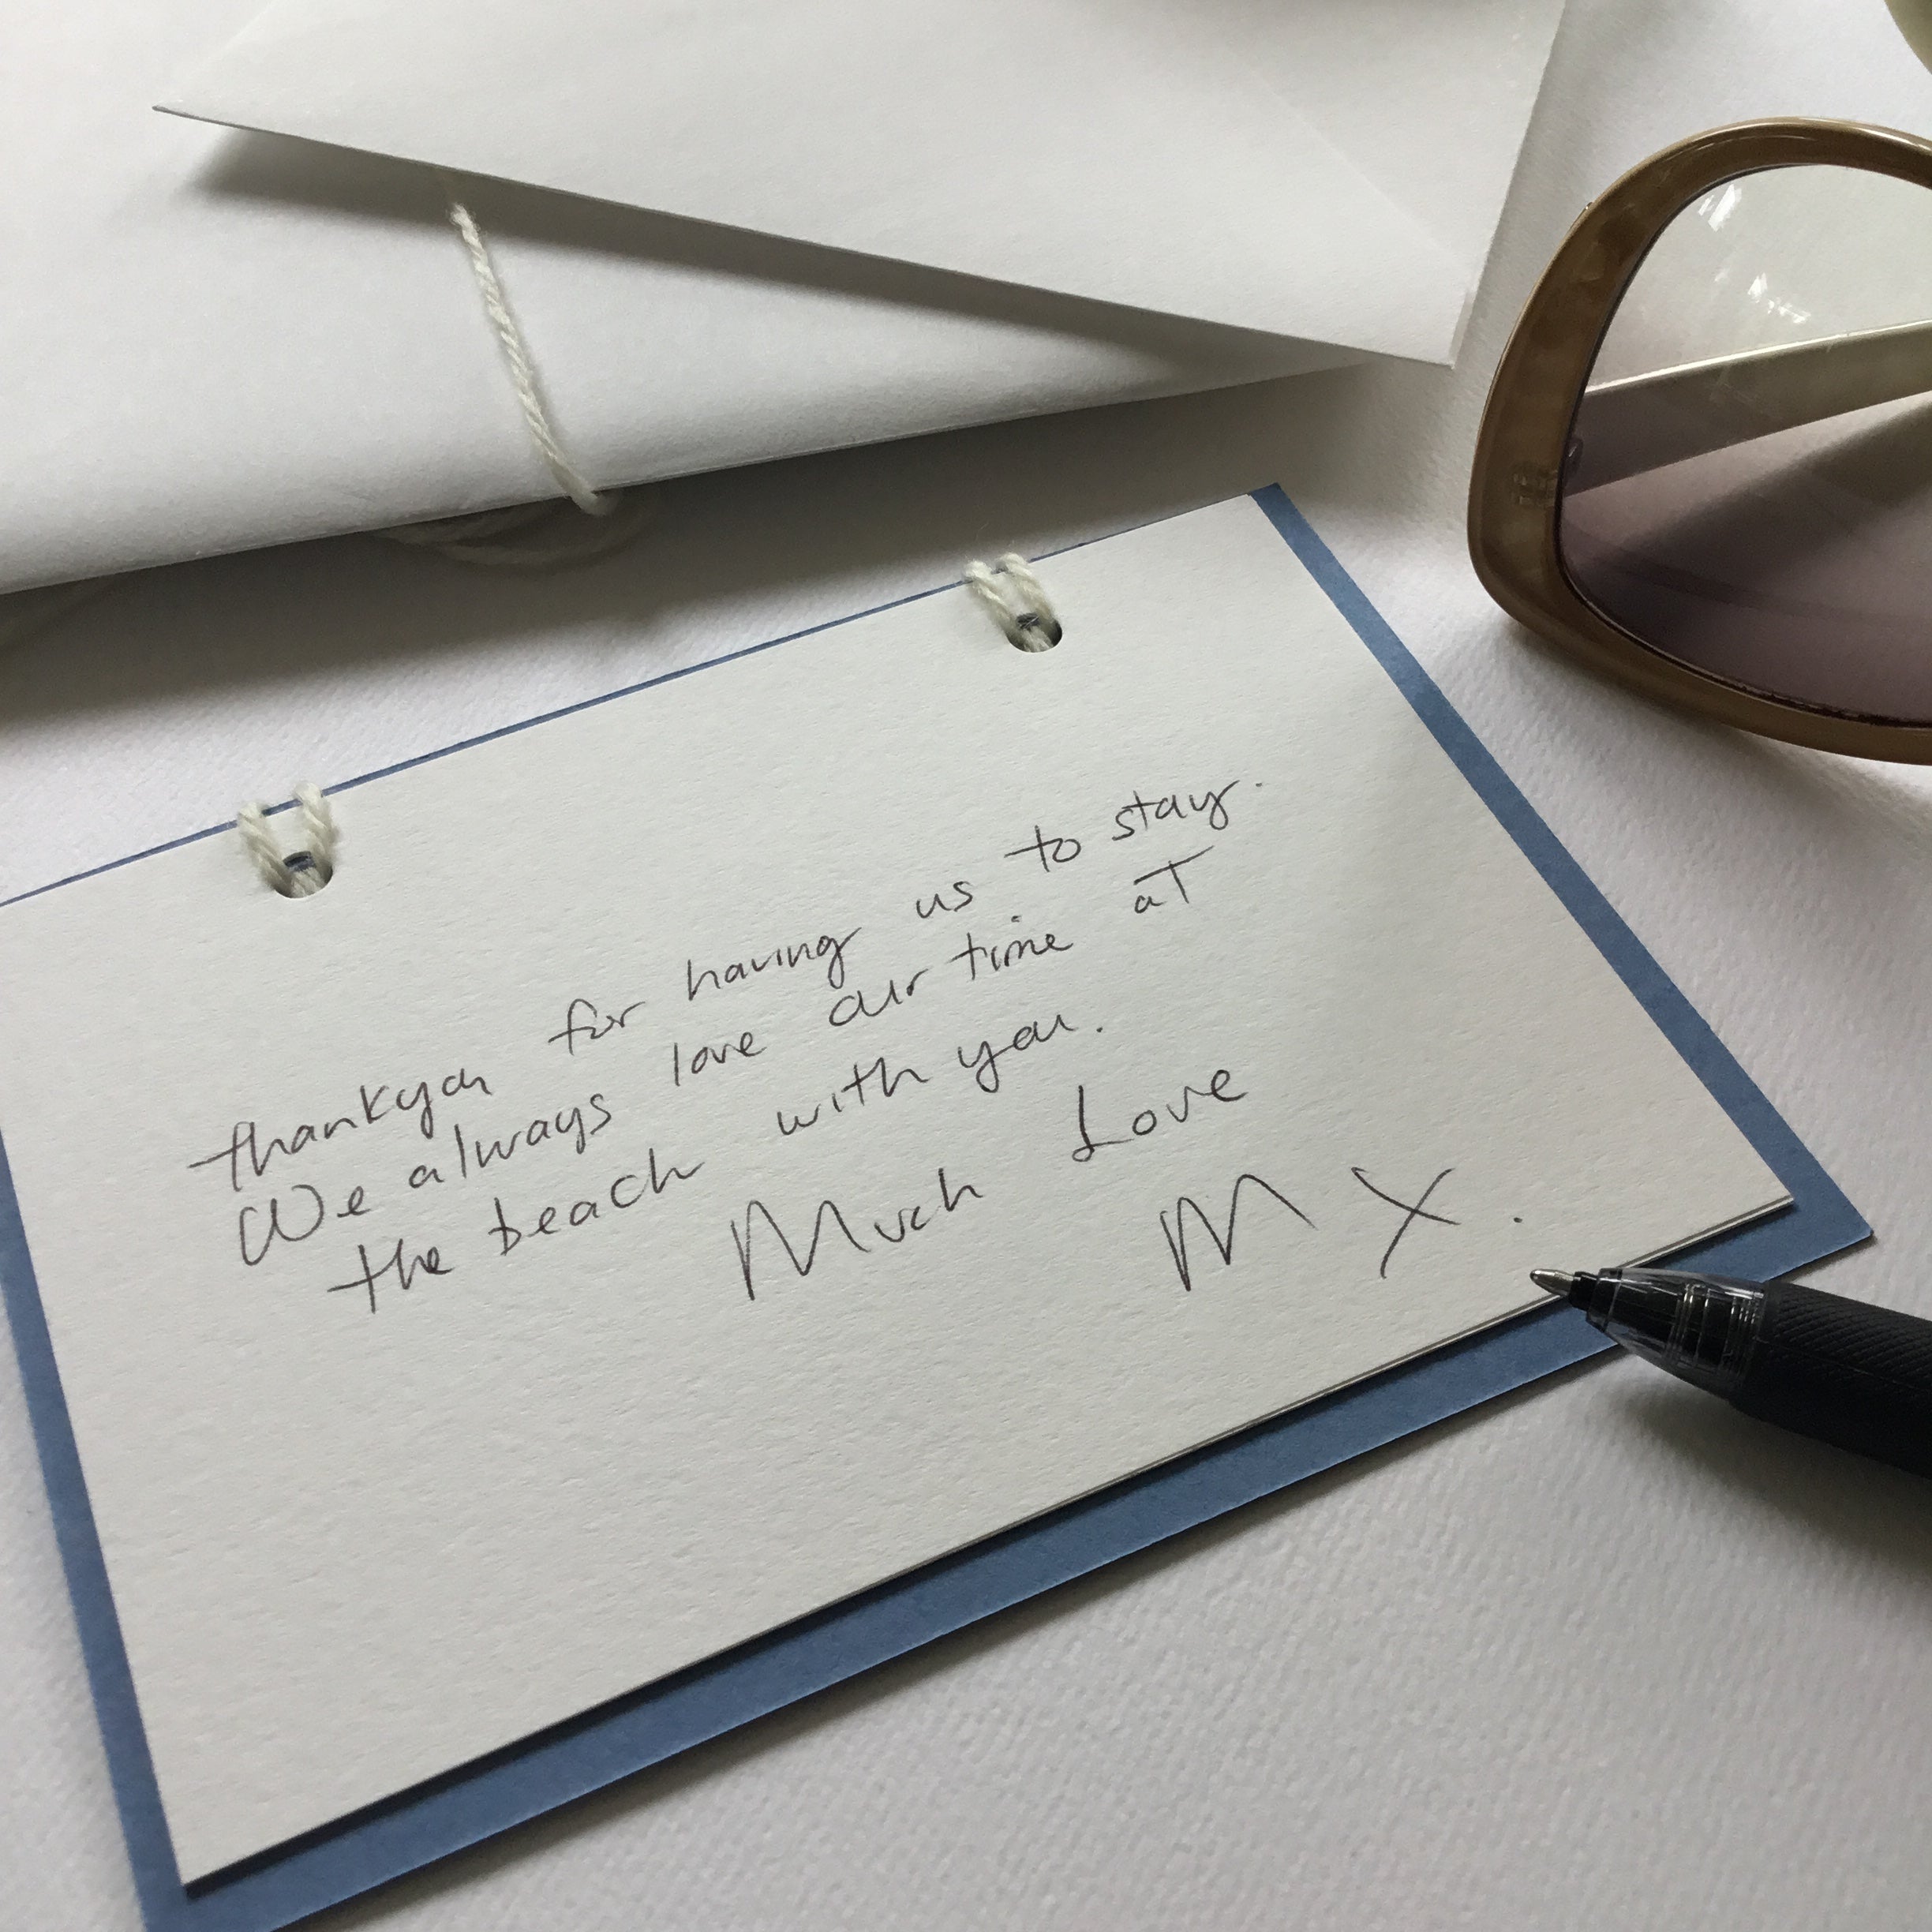 thankyou for having us to stay.
We always love our time at
the beach with you.
Much Love
M X.